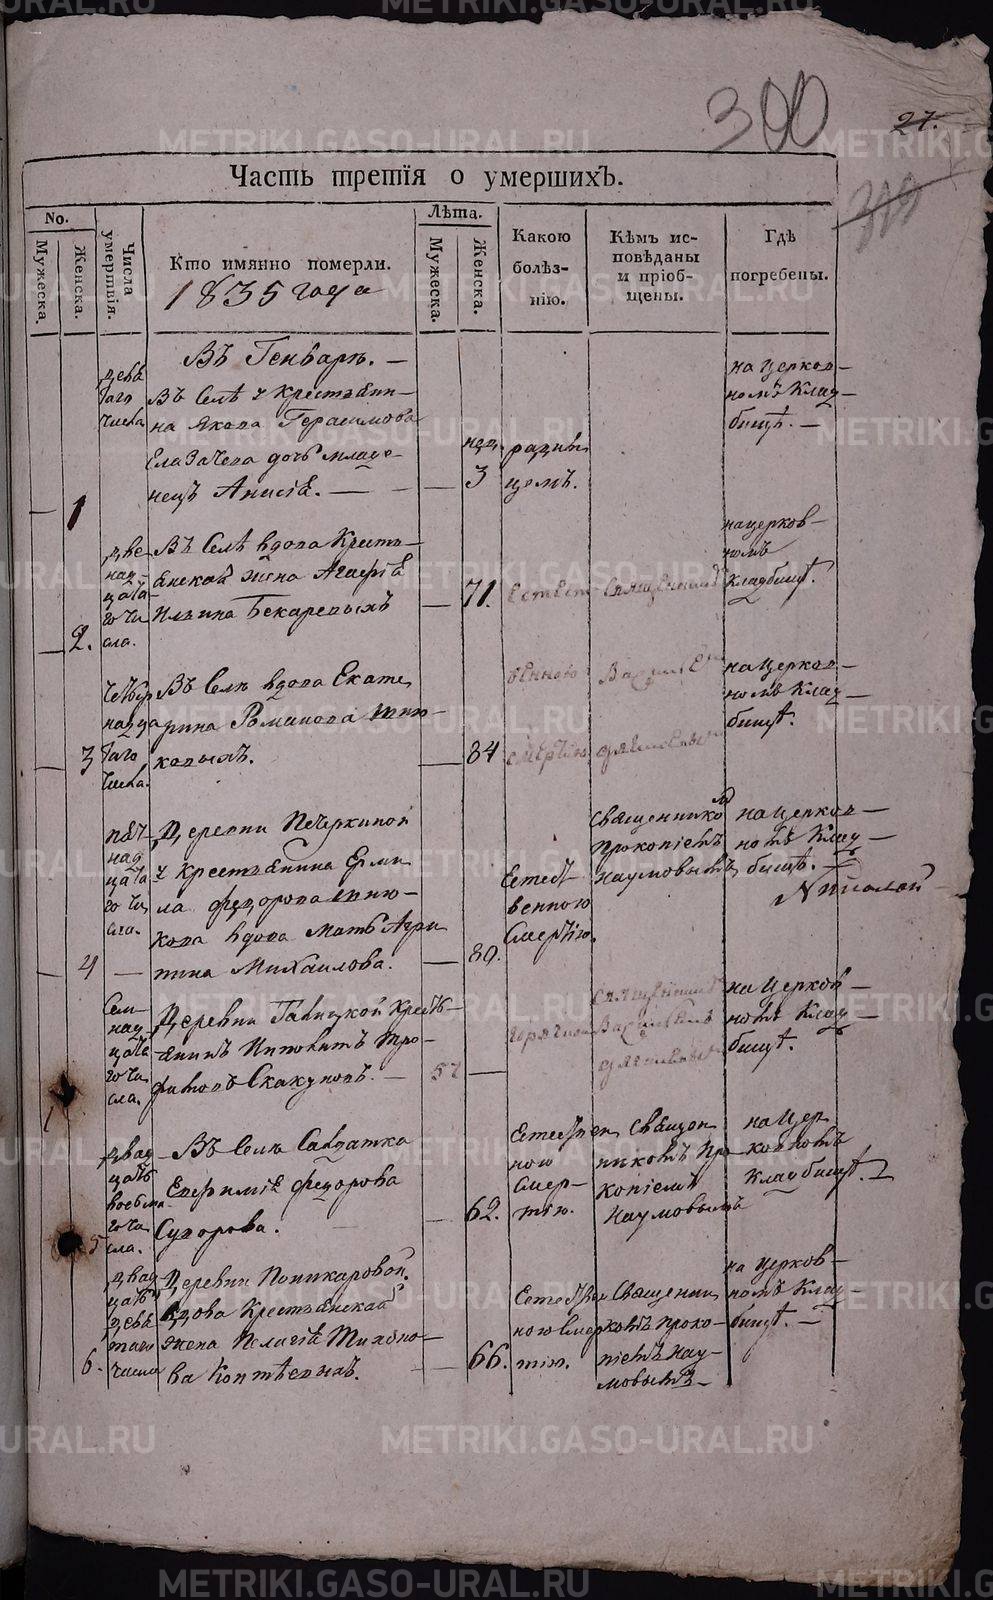 300
27.
319
Часть третія о умершихъ.
No.
Мужеска.
Женска.
Числа умертвія.
Кто имянно померли.
1835 года
Лѣта.
Мужеска.
Женска.
Какою болѣз-
нію.
Кѣмъ ис-
повѣданы
и пріоб-
щены.
Гдѣ
погребены.
Въ Генварѣ. —
1
девя
таго
числа
Въ Селѣ у крестьяни-
на Якова Герасимова
дочь младе-
нецъ Анисія. —
нед.
3
родим
цемъ.
на церков-
номъ Клад-
бищѣ. —
2.
две
над-
цата-
го чи
сла.
Въ Селѣ вдова Кресть-
янская жена Агафія
Ильина Бекаревыхъ
71.
Естест
венною
смертію
Священникомъ
на церков-
номъ
Кладбищѣ.
3
четыр
надца
таго
числа.
Въ Селѣ вдова Екате
рина Романова
ковыхъ.
84
на Церков-
номъ Клад-
бищѣ.
4
пят-
над
цата
го чи
сла.
Деревни Печеркиной
у крестьянина Ерми
ла Федорова
кова вдова мать Агри
пина Михаилова.
80.
Естест
венною
Смертію.
Священнико
Прокопіемъ
Наумовымъ
на Церков-
номъ Клад-
бищѣ.
Николай
1
Сем-
над-
цата
го чи
сла.
Деревни Галицкой Крестъ-
янинъ Титъ Тро-
фимовъ Скакуновъ. —
57
горячкою
Священникомъ
на Церков-
номъ Клад-
бищѣ.
5
двад
цать
восьма
го чи
сла.
Въ Селѣ Салдатка
Евфимія Федорова
Суворова.
62.
Естествен
ною
Смер-
тію.
Священ
никомъ Про
копіемъ
Наумовымъ
на Цер
ковномъ
Кладбищѣ.
6.
двад
цать
девя
таго
числа
Деревни Поникаровой
вдова Крестьянская
жена Пелагія Тихоно-
ва Коптѣевыхъ.
66.
Естествен
ною Смер
тію.
Священни
комъ Проко-
піемъ Нау-
мовымъ
на Церков-
номъ Клад-
бищѣ. —
METRIKI.GASO-URAL.RU